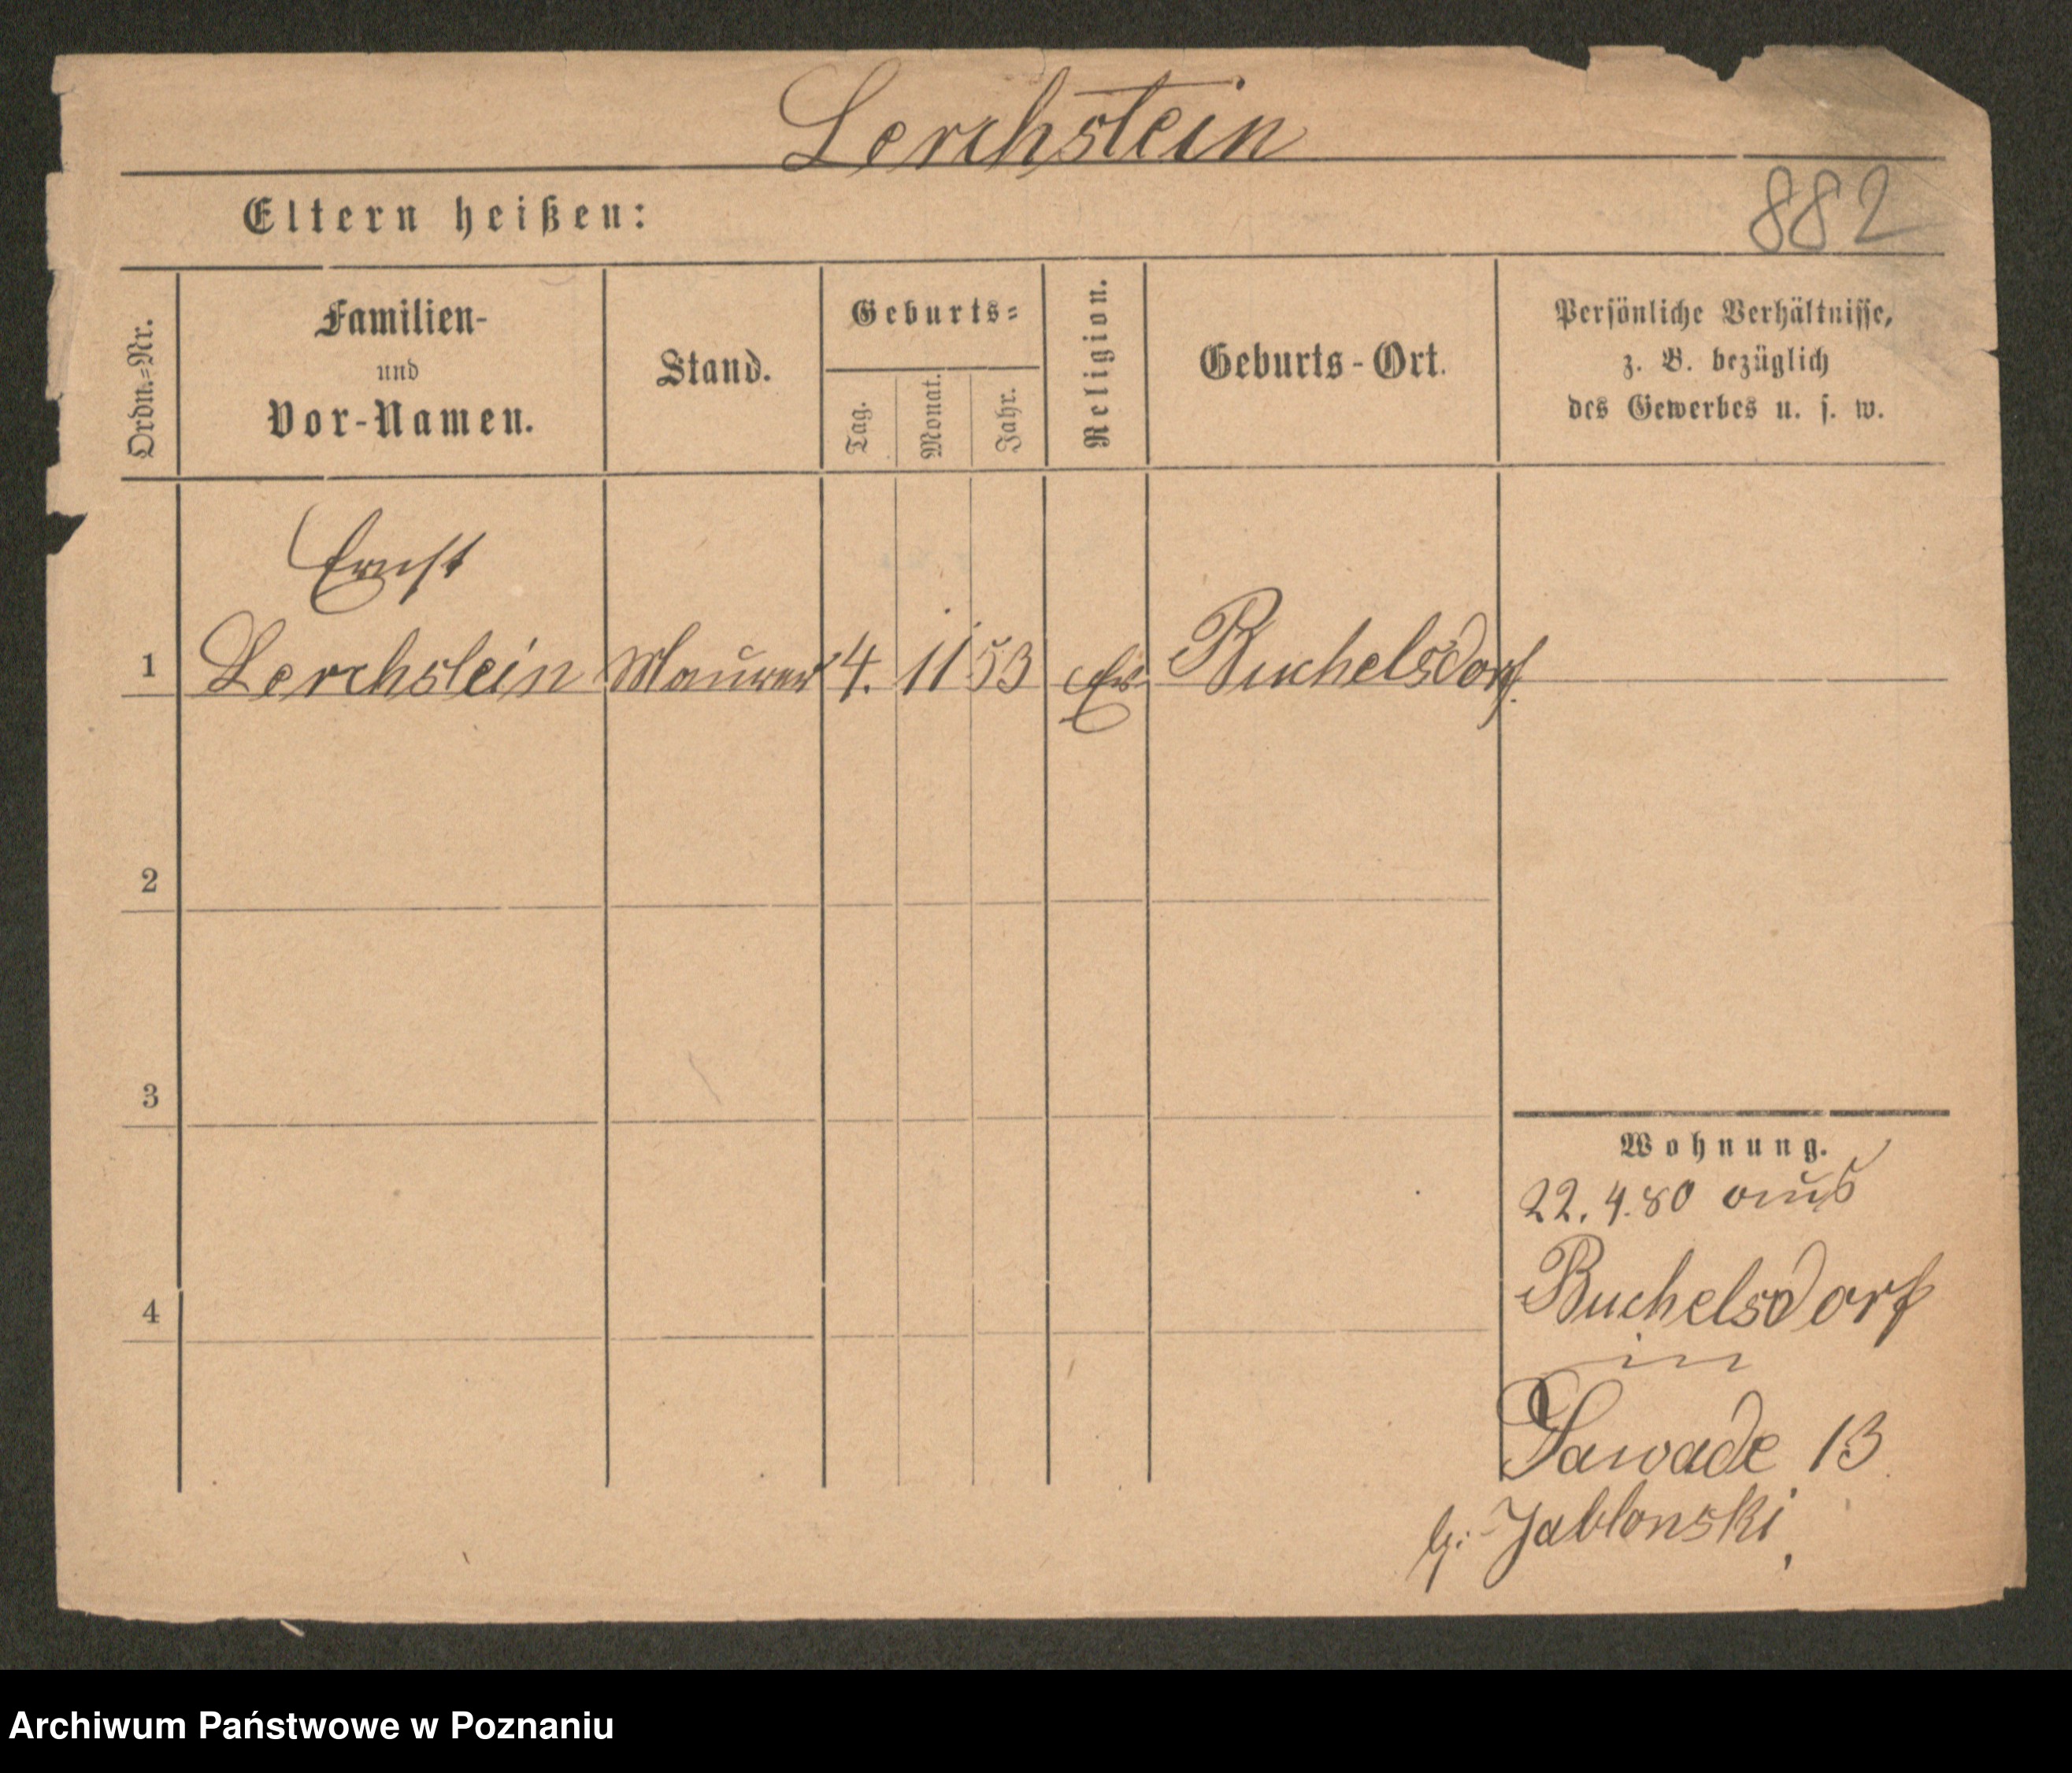 Lerchstein
882
Eltern heißen:
Ordn.=Nr.
Familien-
und
Vor-Namen.
Stand.
Geburts=
Tag.
Monat.
Jahr.
Religion.
Geburts-Ort.
Persönliche Verhältnisse,
z. B. bezüglich
des Gewerbes u. s. w.
Ernst
1 Lerchstein Maurer 4. 11 53 Ev Buchelsdorf.
2
3
4
Wohnung.
22. 4. 80 aus
Buchelsdorf
in
Zawade 13
b: Jablonski,
Archiwum Państwowe w Poznaniu